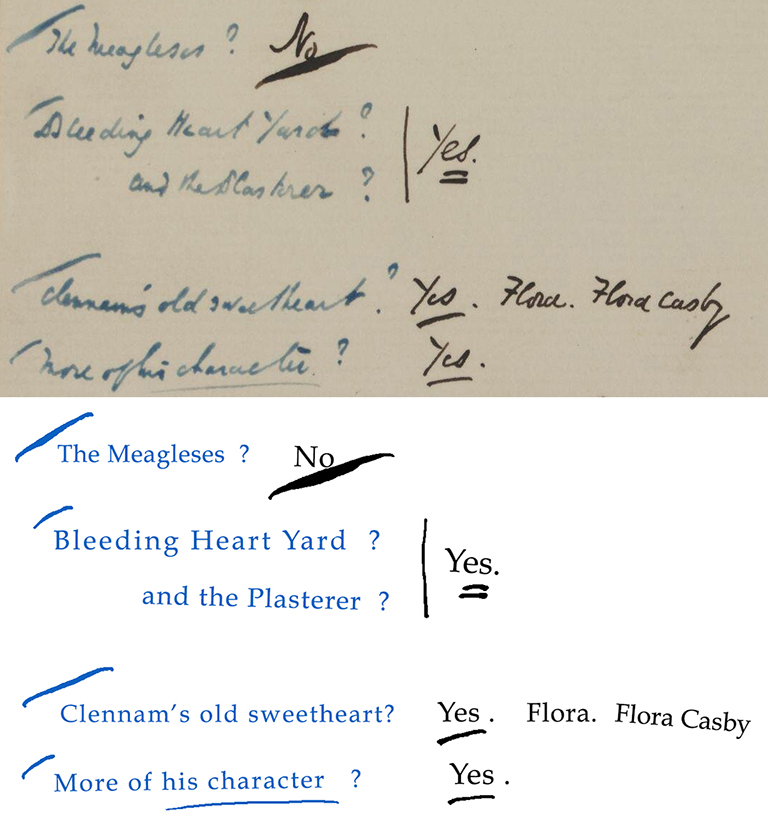 The Meagleses ? No
Bleeding Heart Yard ?
and the Plasterer ?
Yes.
Clennam's old sweetheart ? Yes. Flora. Flora Casby
More of his character ? Yes.
The Meagleses ? No
Bleeding Heart Yard ?
and the Plasterer ?
Yes.
Clennam's old sweetheart? Yes. Flora. Flora Casby
More of his character ? Yes.